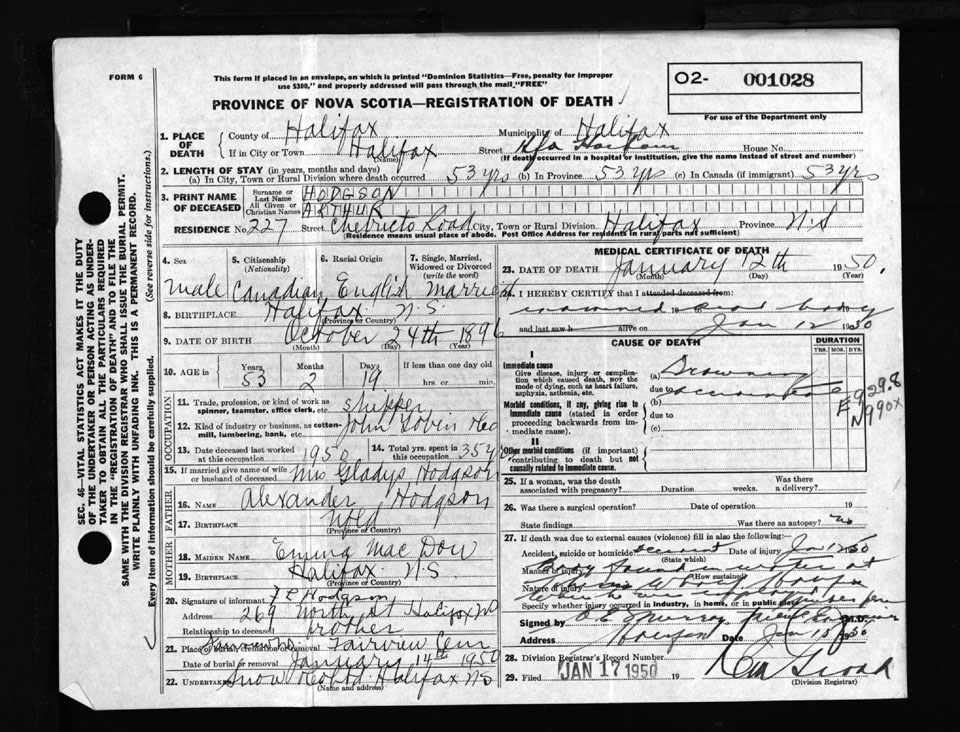 FORM 6
This form if placed in an envelope, on which is printed "Dominion Statistics—Free, penalty for improper
use $300," and properly addressed will pass through the mail "FREE"
PROVINCE OF NOVA SCOTIA—REGISTRATION OF DEATH
O2- 001028
For use of the Department only
SEC. 46—VITAL STATISTICS ACT MAKES IT THE DUTY
OF THE UNDERTAKER OR PERSON ACTING AS UNDER-
TAKER TO OBTAIN ALL THE PARTICULARS REQUIRED
IN THE "REGISTRATION OF DEATH" AND TO FILE THE
SAME WITH THE DIVISION REGISTRAR WHO SHALL ISSUE THE BURIAL PERMIT.
WRITE PLAINLY WITH UNFADING INK. THIS IS A PERMANENT RECORD.
Every item of information should be carefully supplied. (See reverse side for instructions.)
1. PLACE OF DEATH
County of Halifax Municipality of Halifax
If in City or Town Halifax Street Hfx Harbour House No.
(Name)
(If death occurred in a hospital or institution, give the name instead of street and number)
2. LENGTH OF STAY (in years, months and days)
(a) In City, Town or Rural Division where death occurred 53 yrs (b) In Province 53 yrs (c) In Canada (if immigrant) 53 yrs
3. PRINT NAME OF DECEASED
Surname or Last Name HODGSON
All Given or Christian Names ARTHUR
RESIDENCE No. 227 Street Chebucto Road City, Town or Rural Division Halifax Province N.S
(Residence means usual place of abode. Post Office Address for residents in rural parts not sufficient)
4. Sex
5. Citizenship (Nationality)
6. Racial Origin
7. Single, Married, Widowed or Divorced (write the word)
Male Canadian English Married
8. BIRTHPLACE Halifax N.S.
(Province or Country)
9. DATE OF BIRTH October 24th 1896
(Month) (Day) (Year)
10. AGE in Years Months Days If less than one day old
53 2 19 hrs. or min.
OCCUPATION
11. Trade, profession, or kind of work as spinner, teamster, office clerk, etc. Shipper
12. Kind of industry or business, as cotton-mill, lumbering, bank, etc. John Tobin &Co
13. Date deceased last worked at this occupation 1950
14. Total yrs. spent in this occupation 35 yrs
15. If married give name of wife or husband of deceased Mrs Gladys Hodgson
FATHER
16. NAME Alexander Hodgson
17. BIRTHPLACE Nfld
(Province or Country)
MOTHER
18. MAIDEN NAME Emma Mac Dow
19. BIRTHPLACE Halifax N.S.
(Province or Country)
20. Signature of informant Hodgson
Address 269 North St Halifax NS
Relationship to deceased brother
21. Place of burial, cremation or removal Fairview Cem
Date of burial or removal January 14th 1950
22. Undertaker Snow &Co Ltd. Halifax NS
(Name and address)
MEDICAL CERTIFICATE OF DEATH
23. DATE OF DEATH January 12th 1950.
(Month) (Day)
24. I HEREBY CERTIFY that I attended deceased from:
examined body
and last saw h alive on Jan 12 1950
CAUSE OF DEATH
DURATION
YRS. MOS. DYS.
I
Immediate cause
Give disease, injury or complication which caused death, NOT the mode of dying, such as heart failure, asphyxia, asthenia, etc.
(a) Drowning
due to
Morbid conditions, if any, giving rise to immediate cause (stated in order proceeding backwards from immediate cause).
(b)
due to
(c)
E929.8
N990X
II
Other morbid conditions (if important) contributing to death but not causally related to immediate cause.
25. If a woman, was the death associated with pregnancy? Duration weeks. Was there a delivery?
26. Was there a surgical operation? Date of operation 19
State findings Was there an autopsy? no
27. If death was due to external causes (violence) fill in also the following:
Accident, suicide or homicide? accident Date of injury Jan 12 1950
(State which)
Manner of injury Body found in water at
(How sustained)
Nature of injury
Specify whether injury occurred in industry, in home, or in public place
Signed by M.D.
Address Halifax Date Jan 13 1950
28. Division Registrar's Record Number
29. Filed JAN 17 1950 19
(Division Registrar)